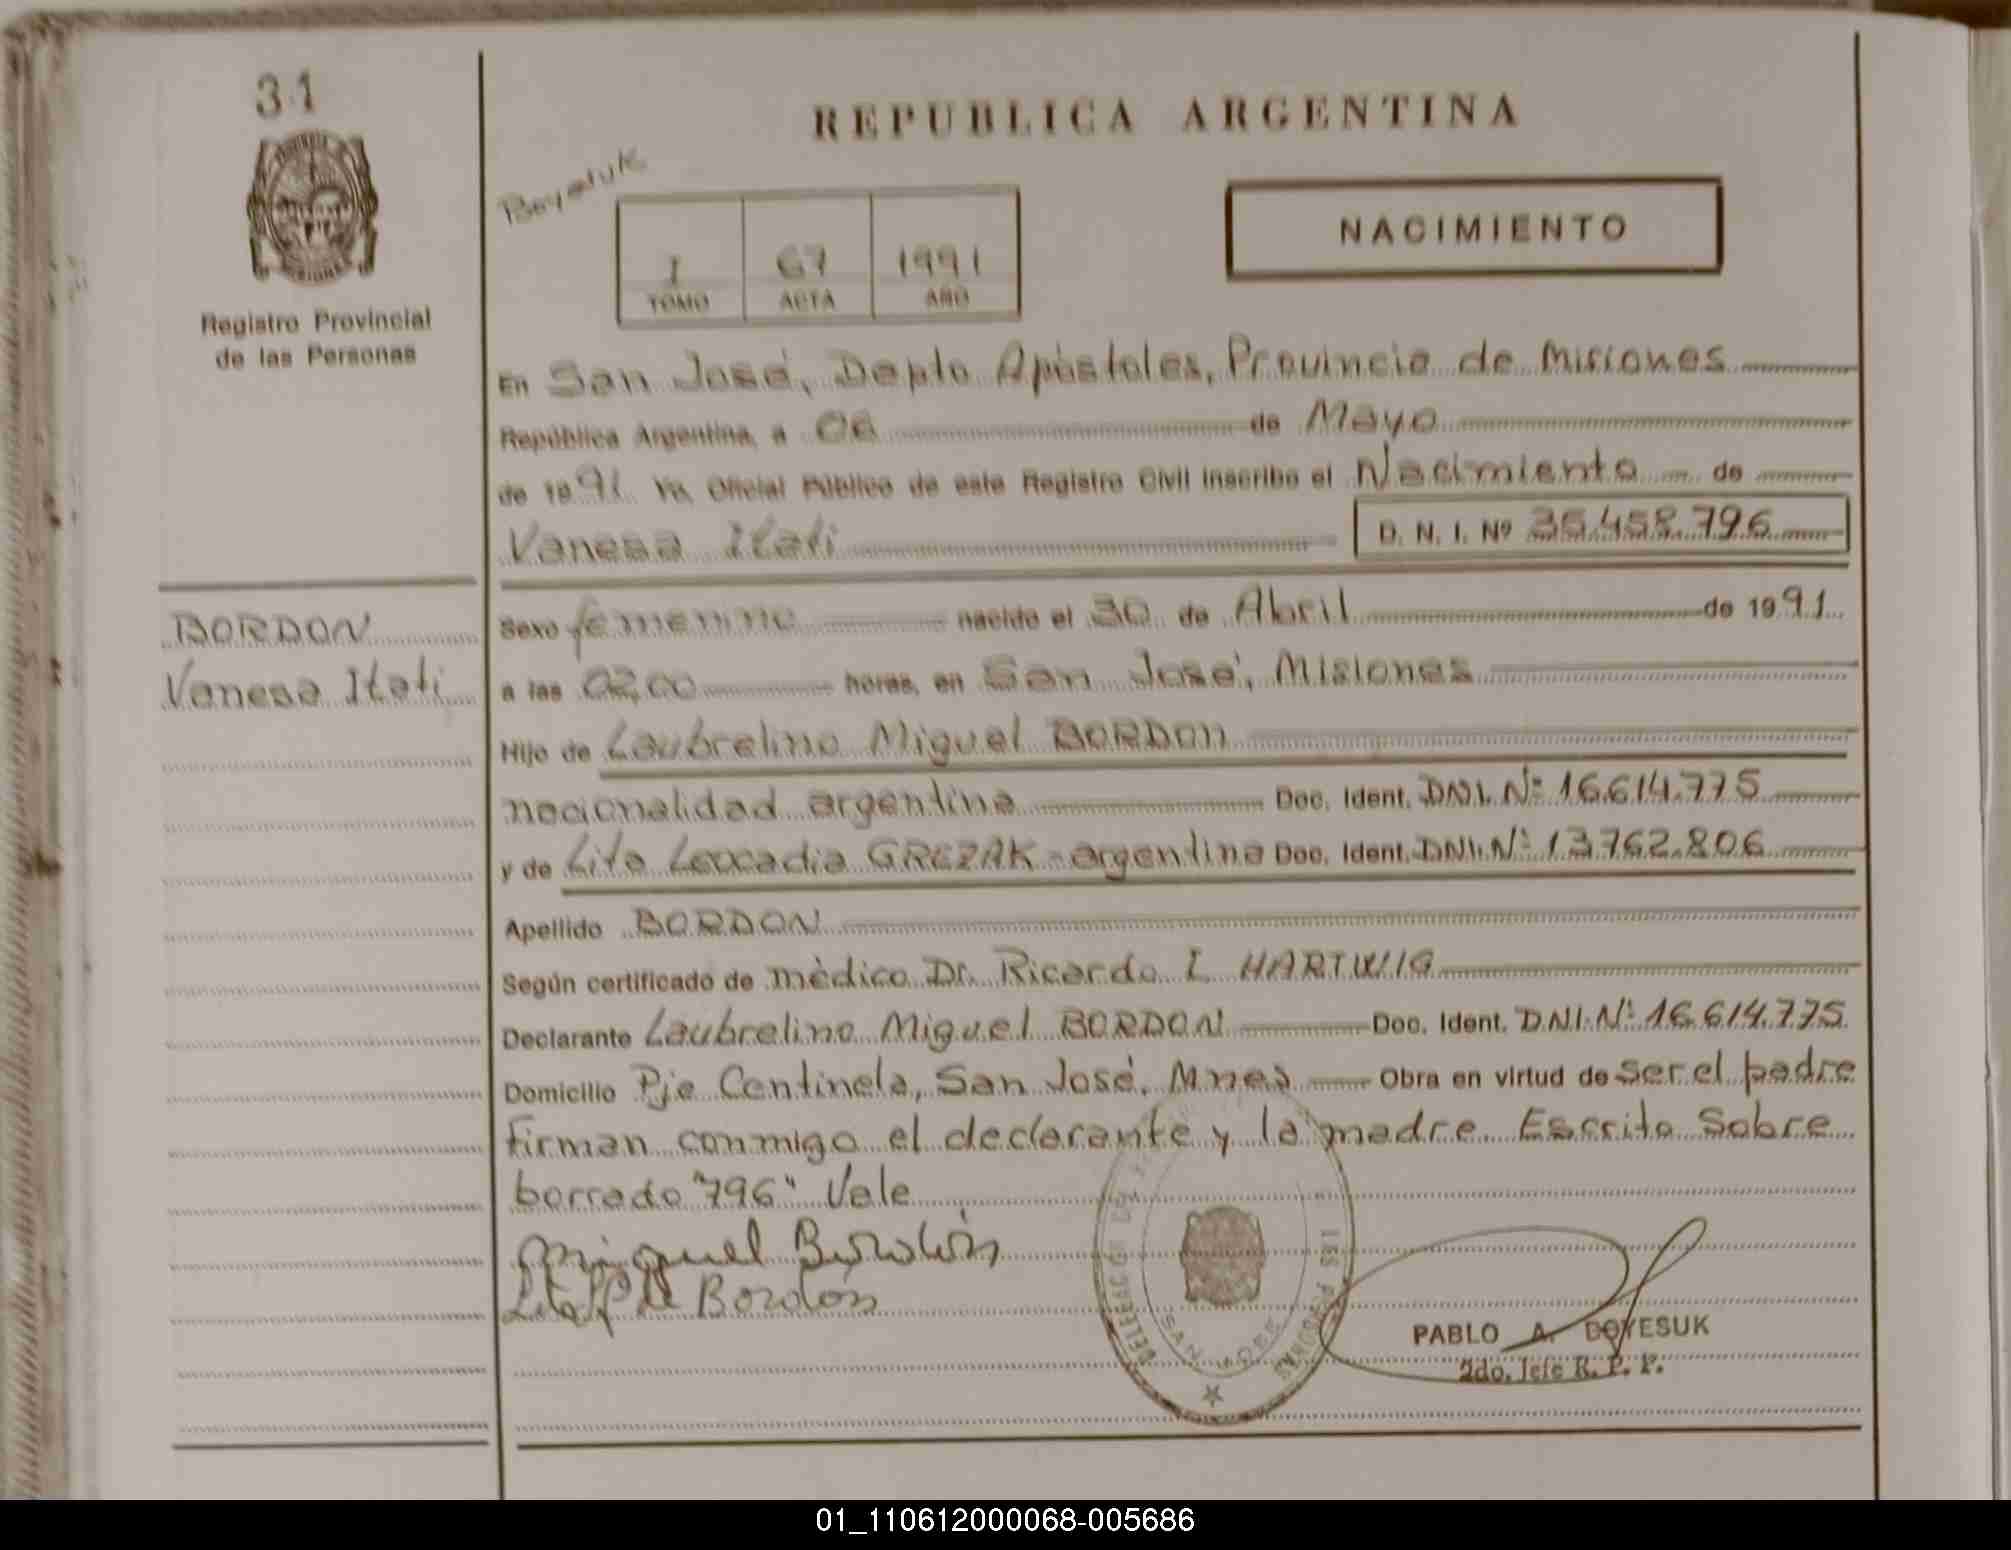 31
REPUBLICA ARGENTINA
NACIMIENTO
I 67 1991
TOMO ACTA AÑO
Registro Provincial
de las Personas
En San José, Depto Apóstoles, Provincia de Misiones
República Argentina, a 06 de Mayo
de 1991 Yo, Oficial Público de este Registro Civil inscribo el Nacimiento de
Vanesa Itati D. N. I. Nº 35.458.796
BORDON
Vanesa Itati
Sexo femenino nacido el 30 de Abril de 1991
a las 02,00 horas, en San José, Misiones
Hijo de Laubrelino Miguel BORDON
nacionalidad argentina Doc. Ident. DNI. Nº 16.614.775
y de Lita Leocadia GREZAK - argentina Doc. Ident. DNI. Nº 13.762.806
Apellido BORDON
Según certificado de médico Dr. Ricardo I. HARTWIG
Declarante Laubrelino Miguel BORDON Doc. Ident. D.N.I. Nº 16.614.775
Domicilio Pje Centinela, San José, Mnes Obra en virtud de ser el padre
firman conmigo el declarante y la madre. Escrito Sobre
borrado "796" Vale
Miguel Bordón
Bordón
SAN JOSE
PABLO A. DOYESUK
2do. Jefe R. P. P.
01_110612000068-005686